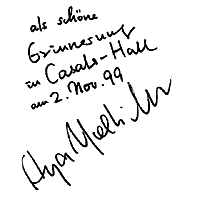 als schöne
Erinnerung
in Casals-Hall
am 2. Nov. 99